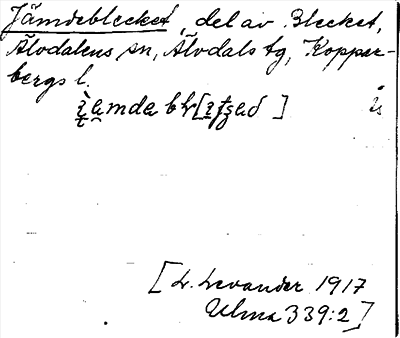 Jämdeblecket, del av Blecket,
Älvdalens sn, Älvdals tg, Koppar-
bergs l.
[L. Levander 1917
Ulma 339:2]